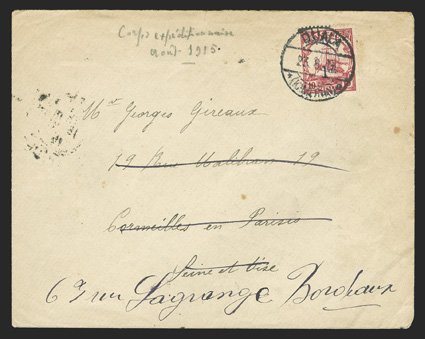 Corps expéditionnaire
août - 1915.
DUALA
23 8
(KAMERUN)
Mr Georges Gireaux
19 Rue 19
Cormeilles en Parisis
Seine et Oise
rue Lagrange Bordeaux